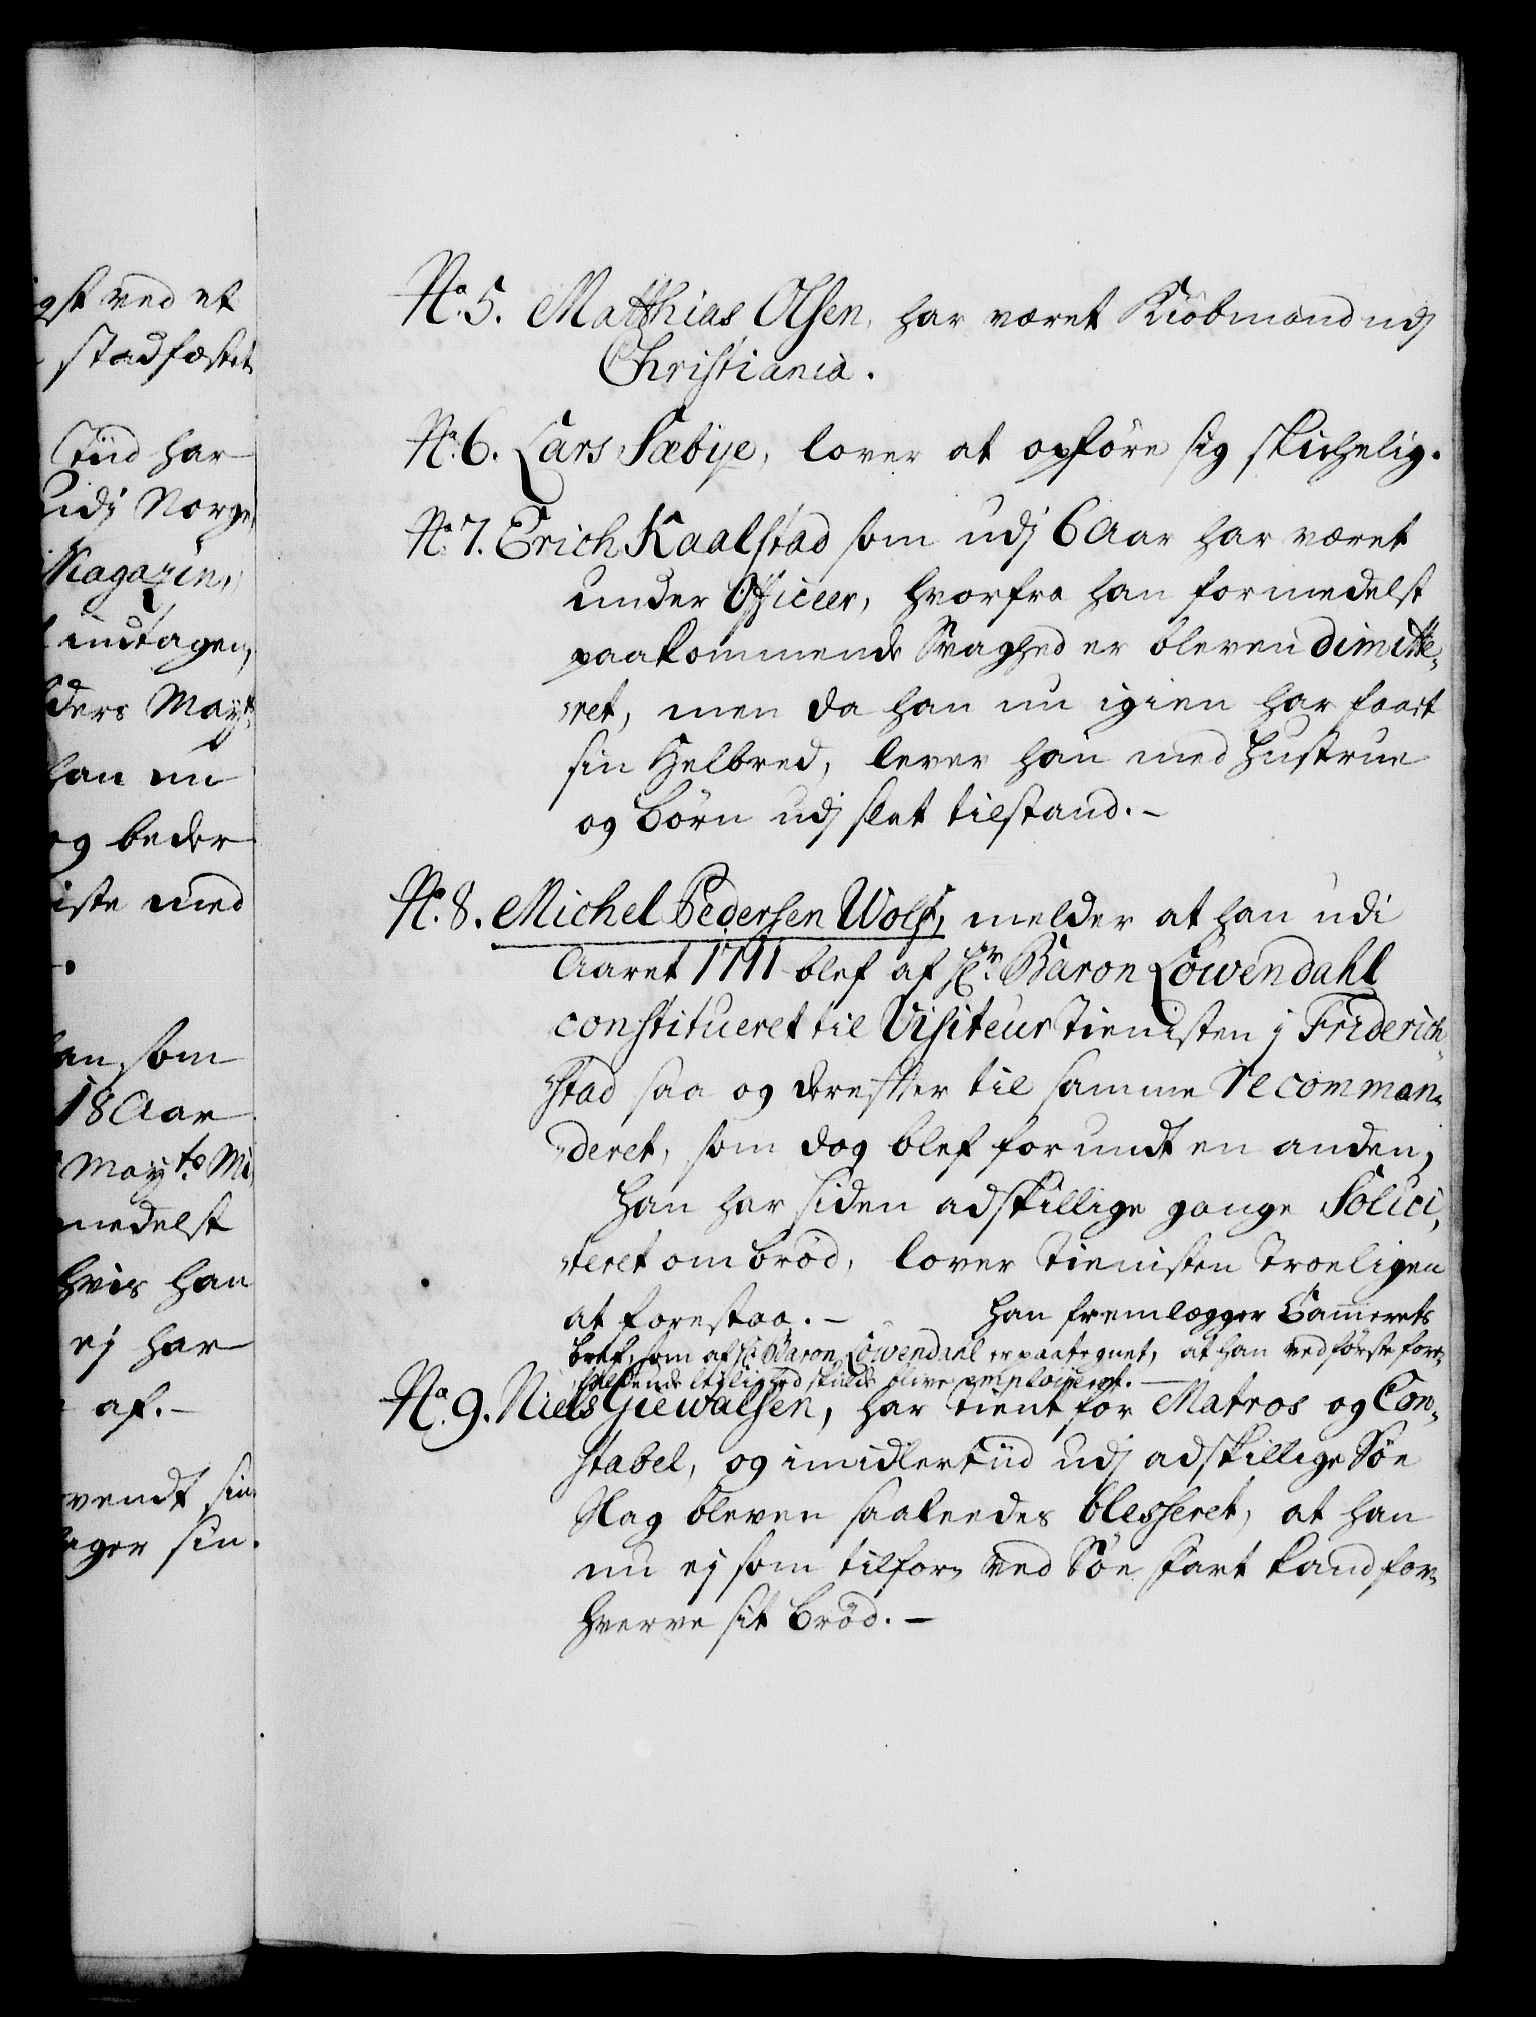 gst ved et
stadfæstet
Tiid har
udj Norge,
Magazin,
indtagen,
ders Mayts
han nu
og beder
iste med
an, som
18 Aar
Mayts Mi
medelst
hvis han
ej har
af.-
vendt sin
ager sin.
No. 5. Matthias Olsen, har været Kiöbmand udj
Christiania.
No. 6. Lars Sæbye, lover at opföre sig skichelig.
No. 7. Erich Kaalstad som udj 6 Aar har været
under Officeer, hvorfra han formedelst
paakommende Svaghed er bleven dimitte-
ret, men da han nu igien har faaet
sin Helbred, lever han med Hustrue
og börn udj slet tilstand.-
No. 8. Michel Pedersen Wolf, melder at han udi
Aaret 1711 blef af Hr. Baron Löwendahl
constitueret til Visiteur Tienisten j Friderich-
stad saa og derefter til samme recomman-
deret, som dog blef forundt en anden,
Han har siden adskillige gange Solici-
teret om bröd, lover Tienisten Troeligen
at forestaa.- Han fremlægger Camerets
bref, som af Hr. Baron Löwendahl er paategnet, at han ved förste fore-
faldende leylighed skulde blive employeret.-
No. 9. Niels Giewalsen, har tient for Matros og Con-
stabel, og imidlertiid udj adskillige Söe
Slag bleven saaleedes blesseret, at han
nu ej som tilforn ved Söe fart kand for-
hverve sit bröd.-